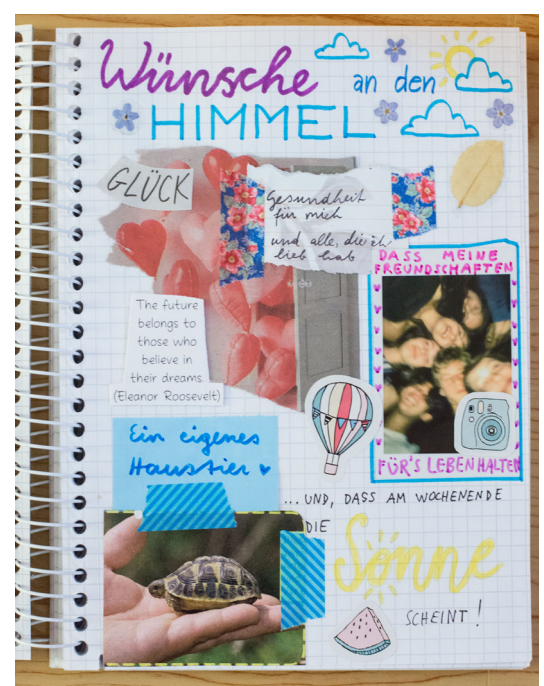 Wünsche an den
HIMMEL
GLÜCK
Gesundheit
für mich
und alle, die ich
lieb hab
DASS MEINE
FREUNDSCHAFTEN
FÜR'S LEBEN HALTEN
The future
belongs to
those who
believe in
their dreams
(Eleanor Roosevelt)
Ein eigenes
Haustier
... UND, DASS AM WOCHENENDE
DIE
Sonne
SCHEINT!